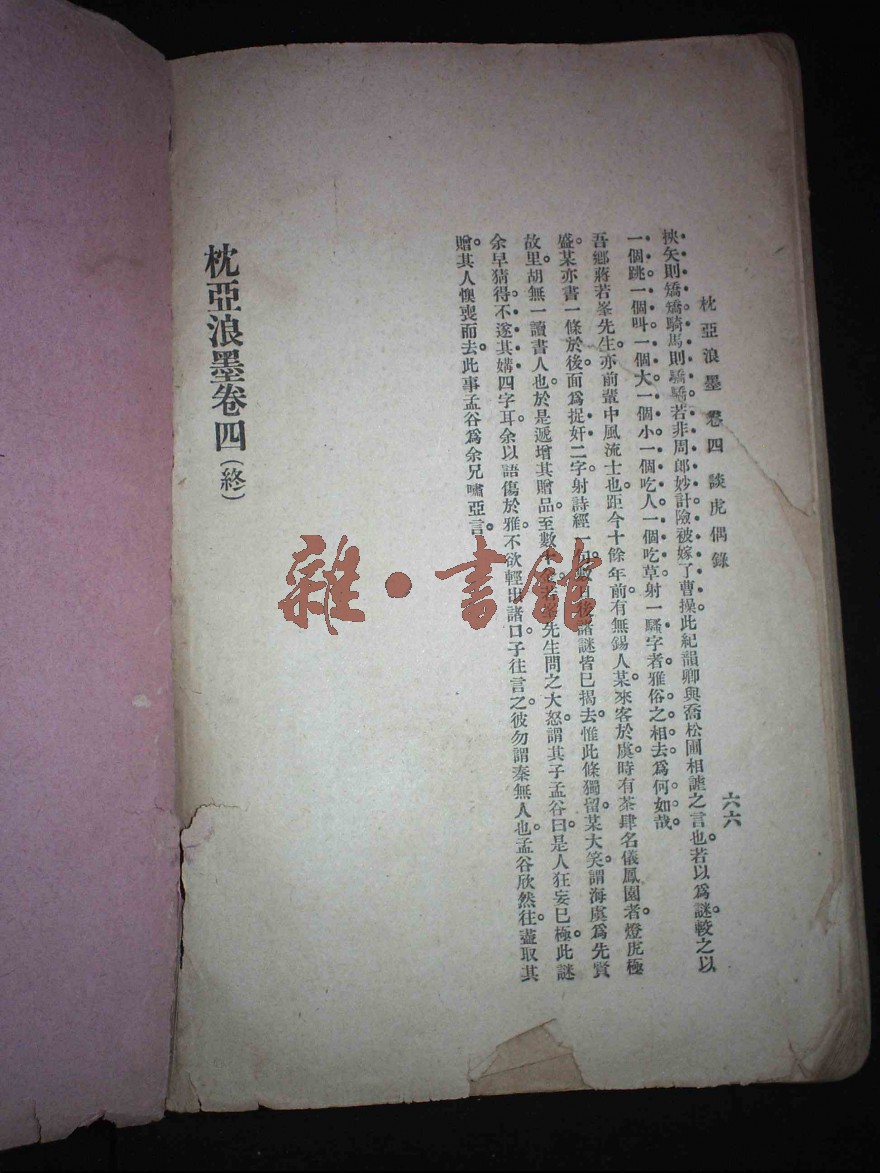 枕亞浪墨卷四　談虎偶錄
六六
挾矢則矯矯騎馬則驕驕若非周郎妙計險被嫁了曹操此紀韻卿與喬松圃相謔之言也。若以爲謎。較之以
一個跳一個叫一個大一個小一個吃人一個吃草射一騷字者。雅俗之相去。爲何如哉。
吾鄉蔣若峯先生。亦前輩中風流士也。距今十餘年前。有無錫人某。來客於虞。時有茶肆名儀鳳園者。燈虎極
盛。某亦書一條於後。面爲捉奸二字。射詩經一句。數日後。諸謎皆已揭去。惟此條獨留。某大笑。謂海虞爲先賢
故里。胡無一讀書人也。於是遞增其贈品。至數先生問之大怒。謂其子孟谷曰。是人狂妄已極。此謎
余早猜得。不遂其媾四字耳。余以語傷於雅。不欲輕出諸口。子往言之。彼勿謂秦無人也。孟谷欣然往。盡取其
贈。其人懊喪而去。此事孟谷爲余兄嘯亞言。
枕亞浪墨卷四（終）
雜·書館